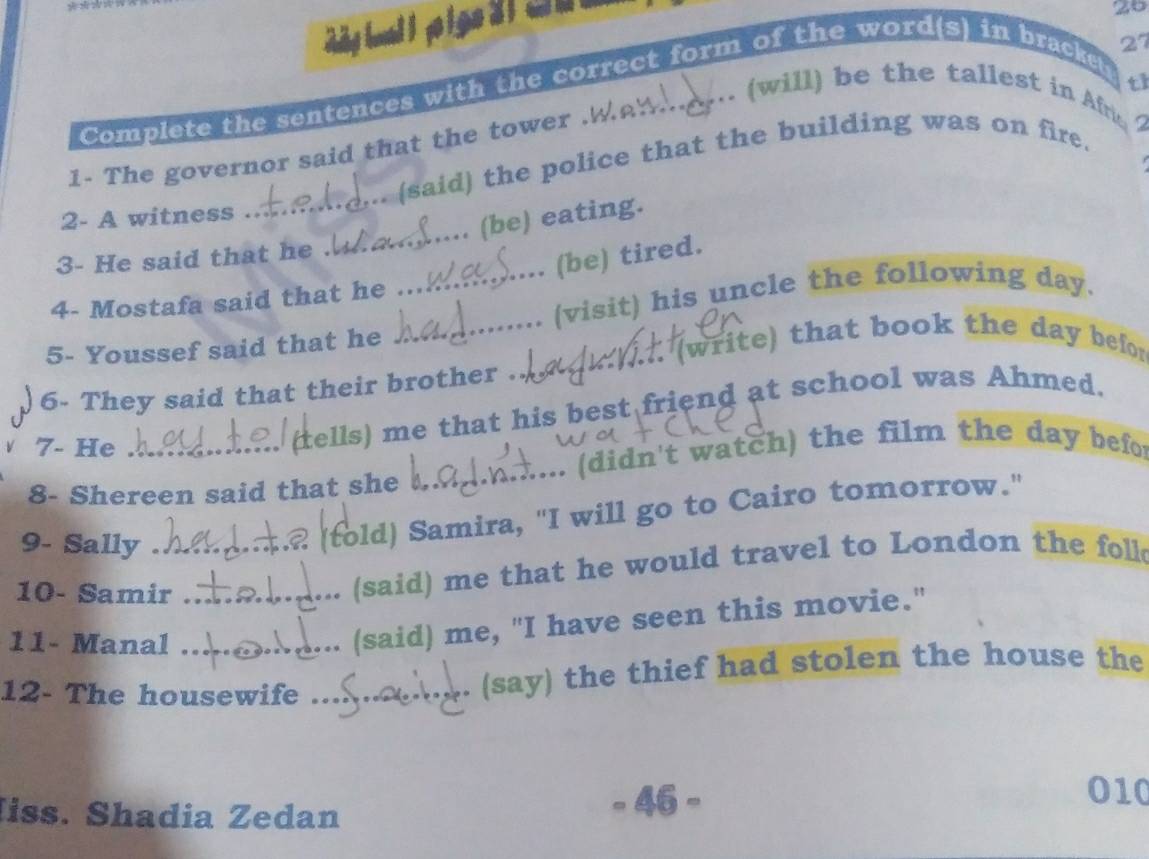 السابقة
Complete the sentences with the correct form of the word(s) in bracket
1- The governor said that the tower .would... (will) be the tallest in Afric
2- A witness ...told... (said) the police that the building was on fire.
3- He said that he .was.... (be) eating.
4- Mostafa said that he ...was.... (be) tired.
5- Youssef said that he had......... (visit) his uncle the following day.
6- They said that their brother ..had written (write) that book the day befor
7- He had told (tells) me that his best friend at school was Ahmed.
8- Shereen said that she hadn't watched (didn't watch) the film the day befor
9- Sally .had told (told) Samira, "I will go to Cairo tomorrow."
10- Samir ...told... (said) me that he would travel to London the follo
11- Manal ...told... (said) me, "I have seen this movie."
12- The housewife ....said. (say) the thief had stolen the house the
iss. Shadia Zedan
- 46 -
010
26
27